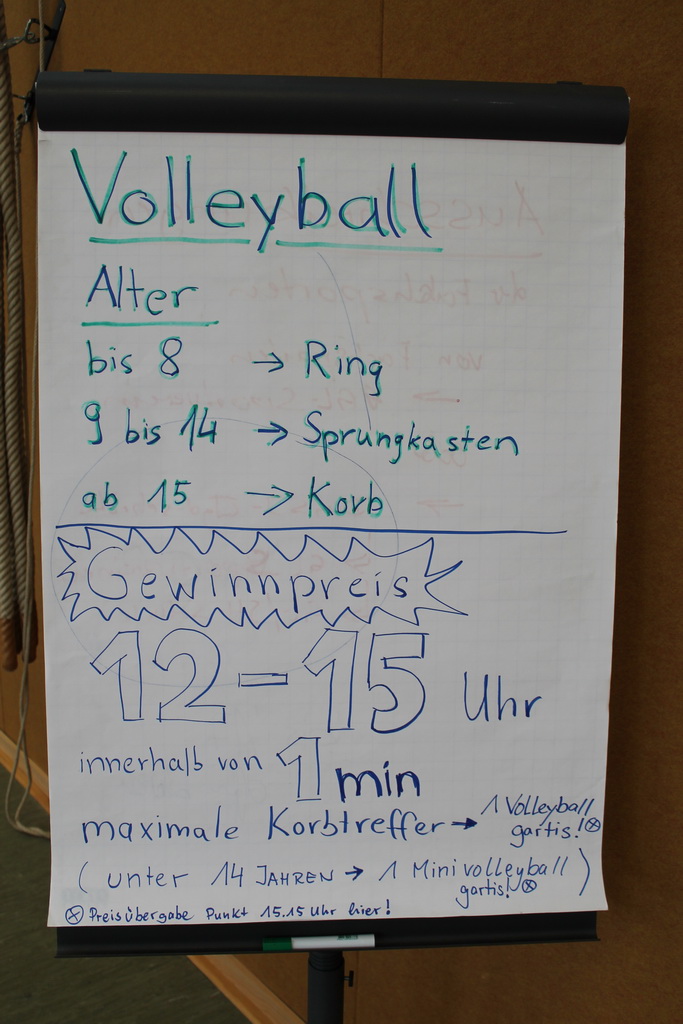 Volleyball
Alter
bis 8 → Ring
9 bis 14 → Sprungkasten
ab 15 → Korb
Gewinnpreis
12-15 Uhr
innerhalb von 1 min
maximale Korbtreffer → 1 Volleyball
gartis! ⊗
(unter 14 JAHREN → 1 Minivolleyball)
gartis! ⊗
⊗ Preisübergabe Punkt 15.15 Uhr hier!